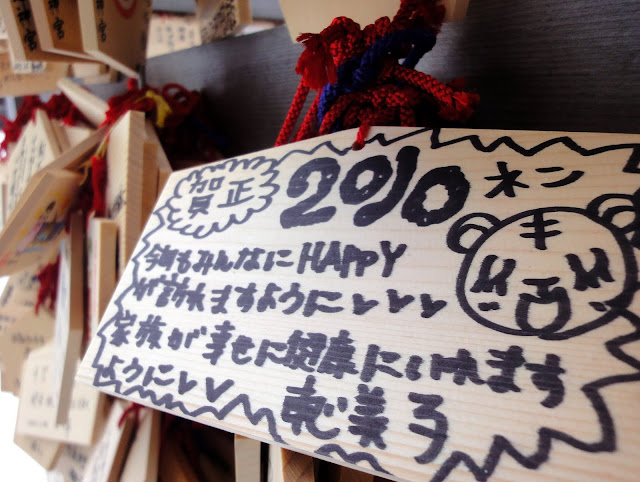 賀正
2010 ネン
今年もみんなにHAPPY
が訪れますようにレレレ
家族が幸せに健康にいれます
ようにレレ
恵美子